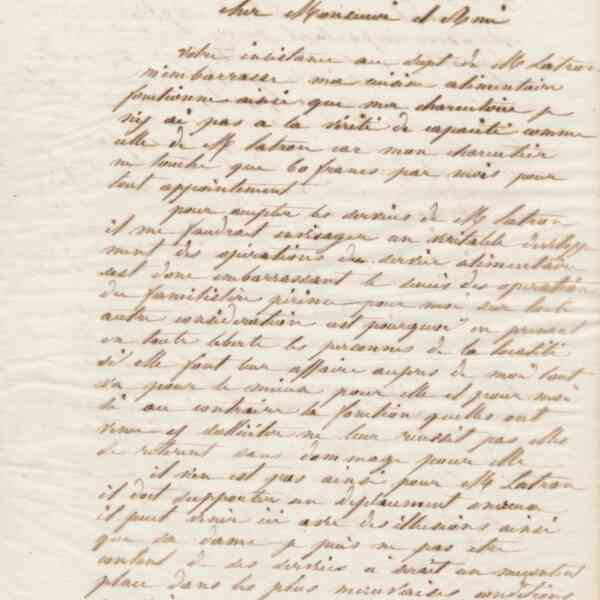 cher Monsieur et Ami
votre insistance au sujet de M Latron
m'embarrasse ma cuisine alimentaire
fonctionne ainsi que ma charcuterie je
n'y ai pas a la vérité de capacité comme
celle de M Latron car mon charcutier
ne touche que 60 francs par mois pour
tout appointement
pour accepter les services de M Latron
il me faudrait envisager un véritable développe
ment des opérations du service alimentaire
est donc embarrassant le succès des opérations
du familistère prime pour moi sur toute
autre considération est pourquoi en prenant
en toute liberté les personnes de la localité
si elle font leur affaire aupres de moi tout
va pour le mieux pour elle et pour moi
si au contraire la fonction quelles ont
venu y solliciter ne leur réussit pas elles
se retirent sans dommage pour elle
il n'en est pas ainsi pour M Latron
il doit supporter un déplacement onéreux
il peut venir ici avec des illusions ainsi
que sa dame je puis ne pas etre
content de ses services a serait un
place dans les plus mauvaises conditions